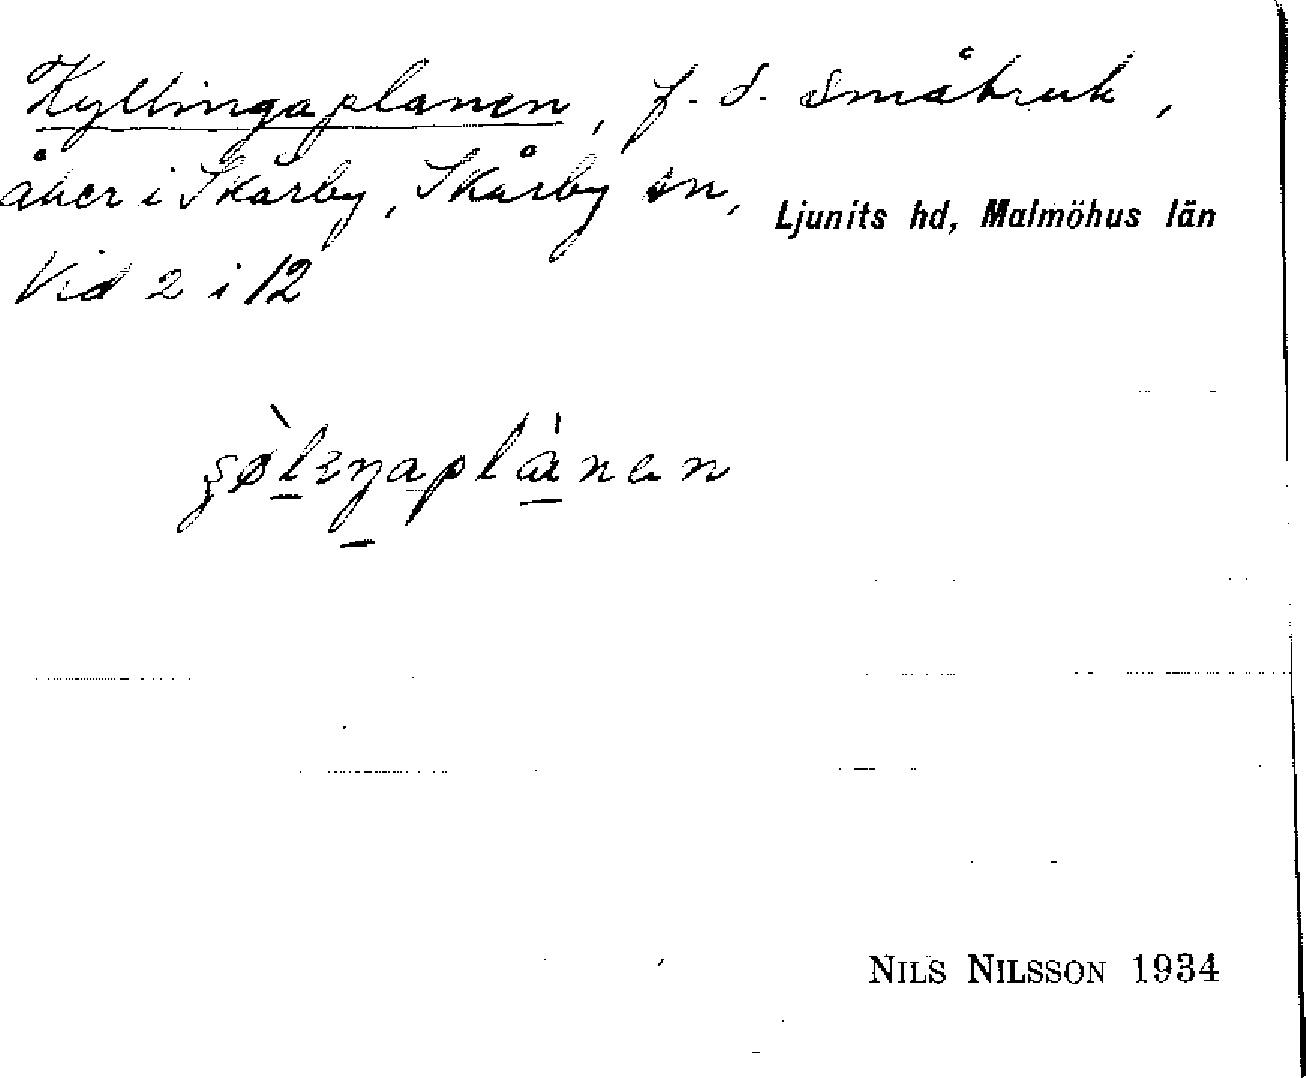 Kyllingaplanen, f.d. småbruk,
åker i Skårby, Skårby sn, Ljunits hd, Malmöhus län
Vid 2 i 12
NILS NILSSON 1934